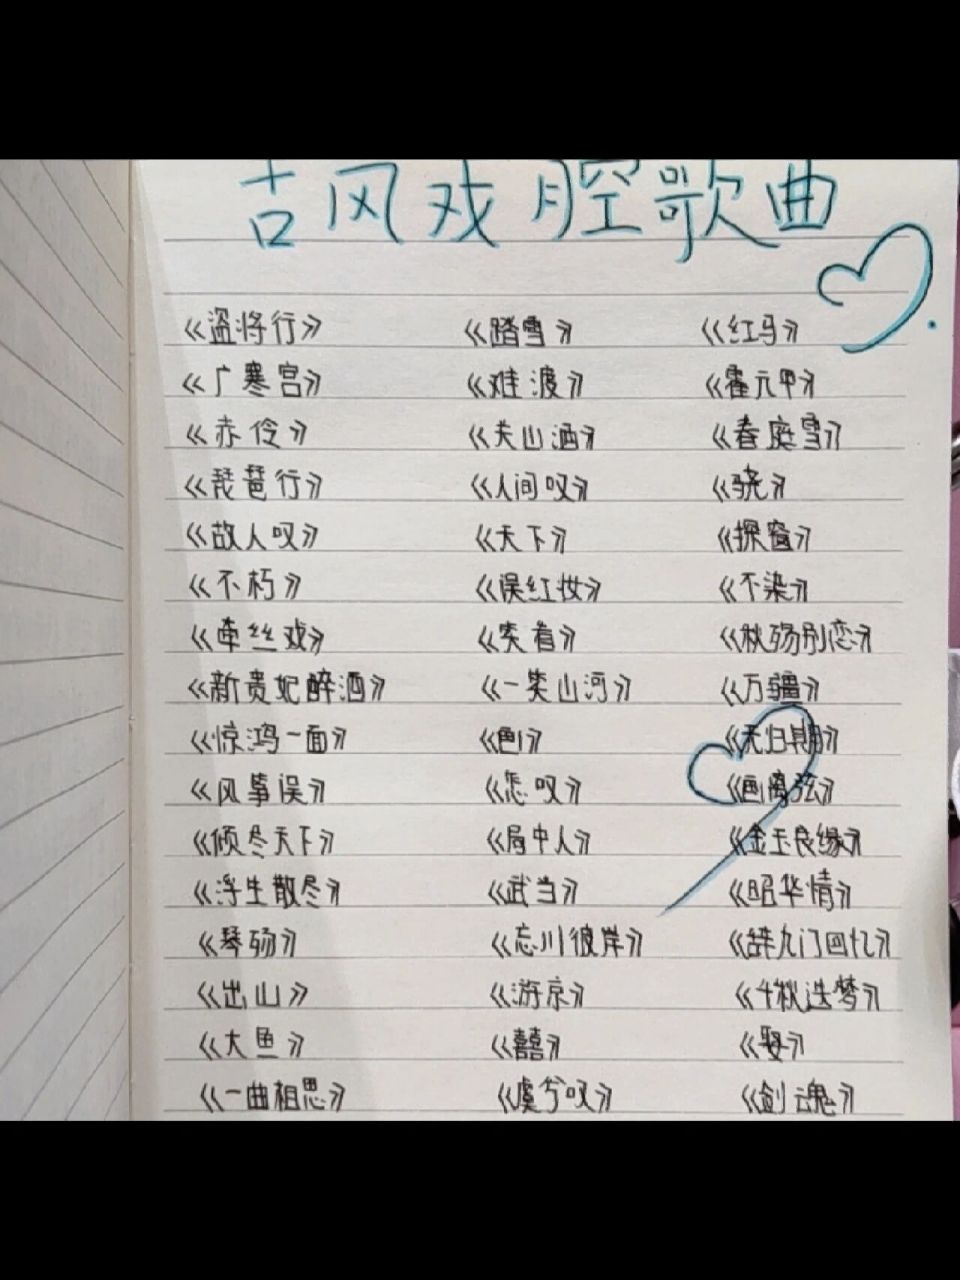 古风戏腔歌曲
《盗将行》 《踏雪》 《红马》
《广寒宫》 《难渡》 《霍元甲》
《赤伶》 《关山酒》 《春庭雪》
《琵琶行》 《人间叹》 《骁》
《故人叹》 《天下》 《探窗》
《不朽》 《误红妆》 《不染》
《牵丝戏》 《笑着》 《秋殇别恋》
《新贵妃醉酒》 《一笑山河》 《万疆》
《惊鸿一面》 《色》 《无归期》
《风筝误》 《怎叹》 《画离弦》
《倾尽天下》 《局中人》 《金玉良缘》
《浮生散尽》 《武当》 《昭华情》
《琴殇》 《忘川彼岸》 《辞九门回忆》
《出山》 《游京》 《千秋迭梦》
《大鱼》 《囍》 《娶》
《一曲相思》 《虞兮叹》 《剑魂》